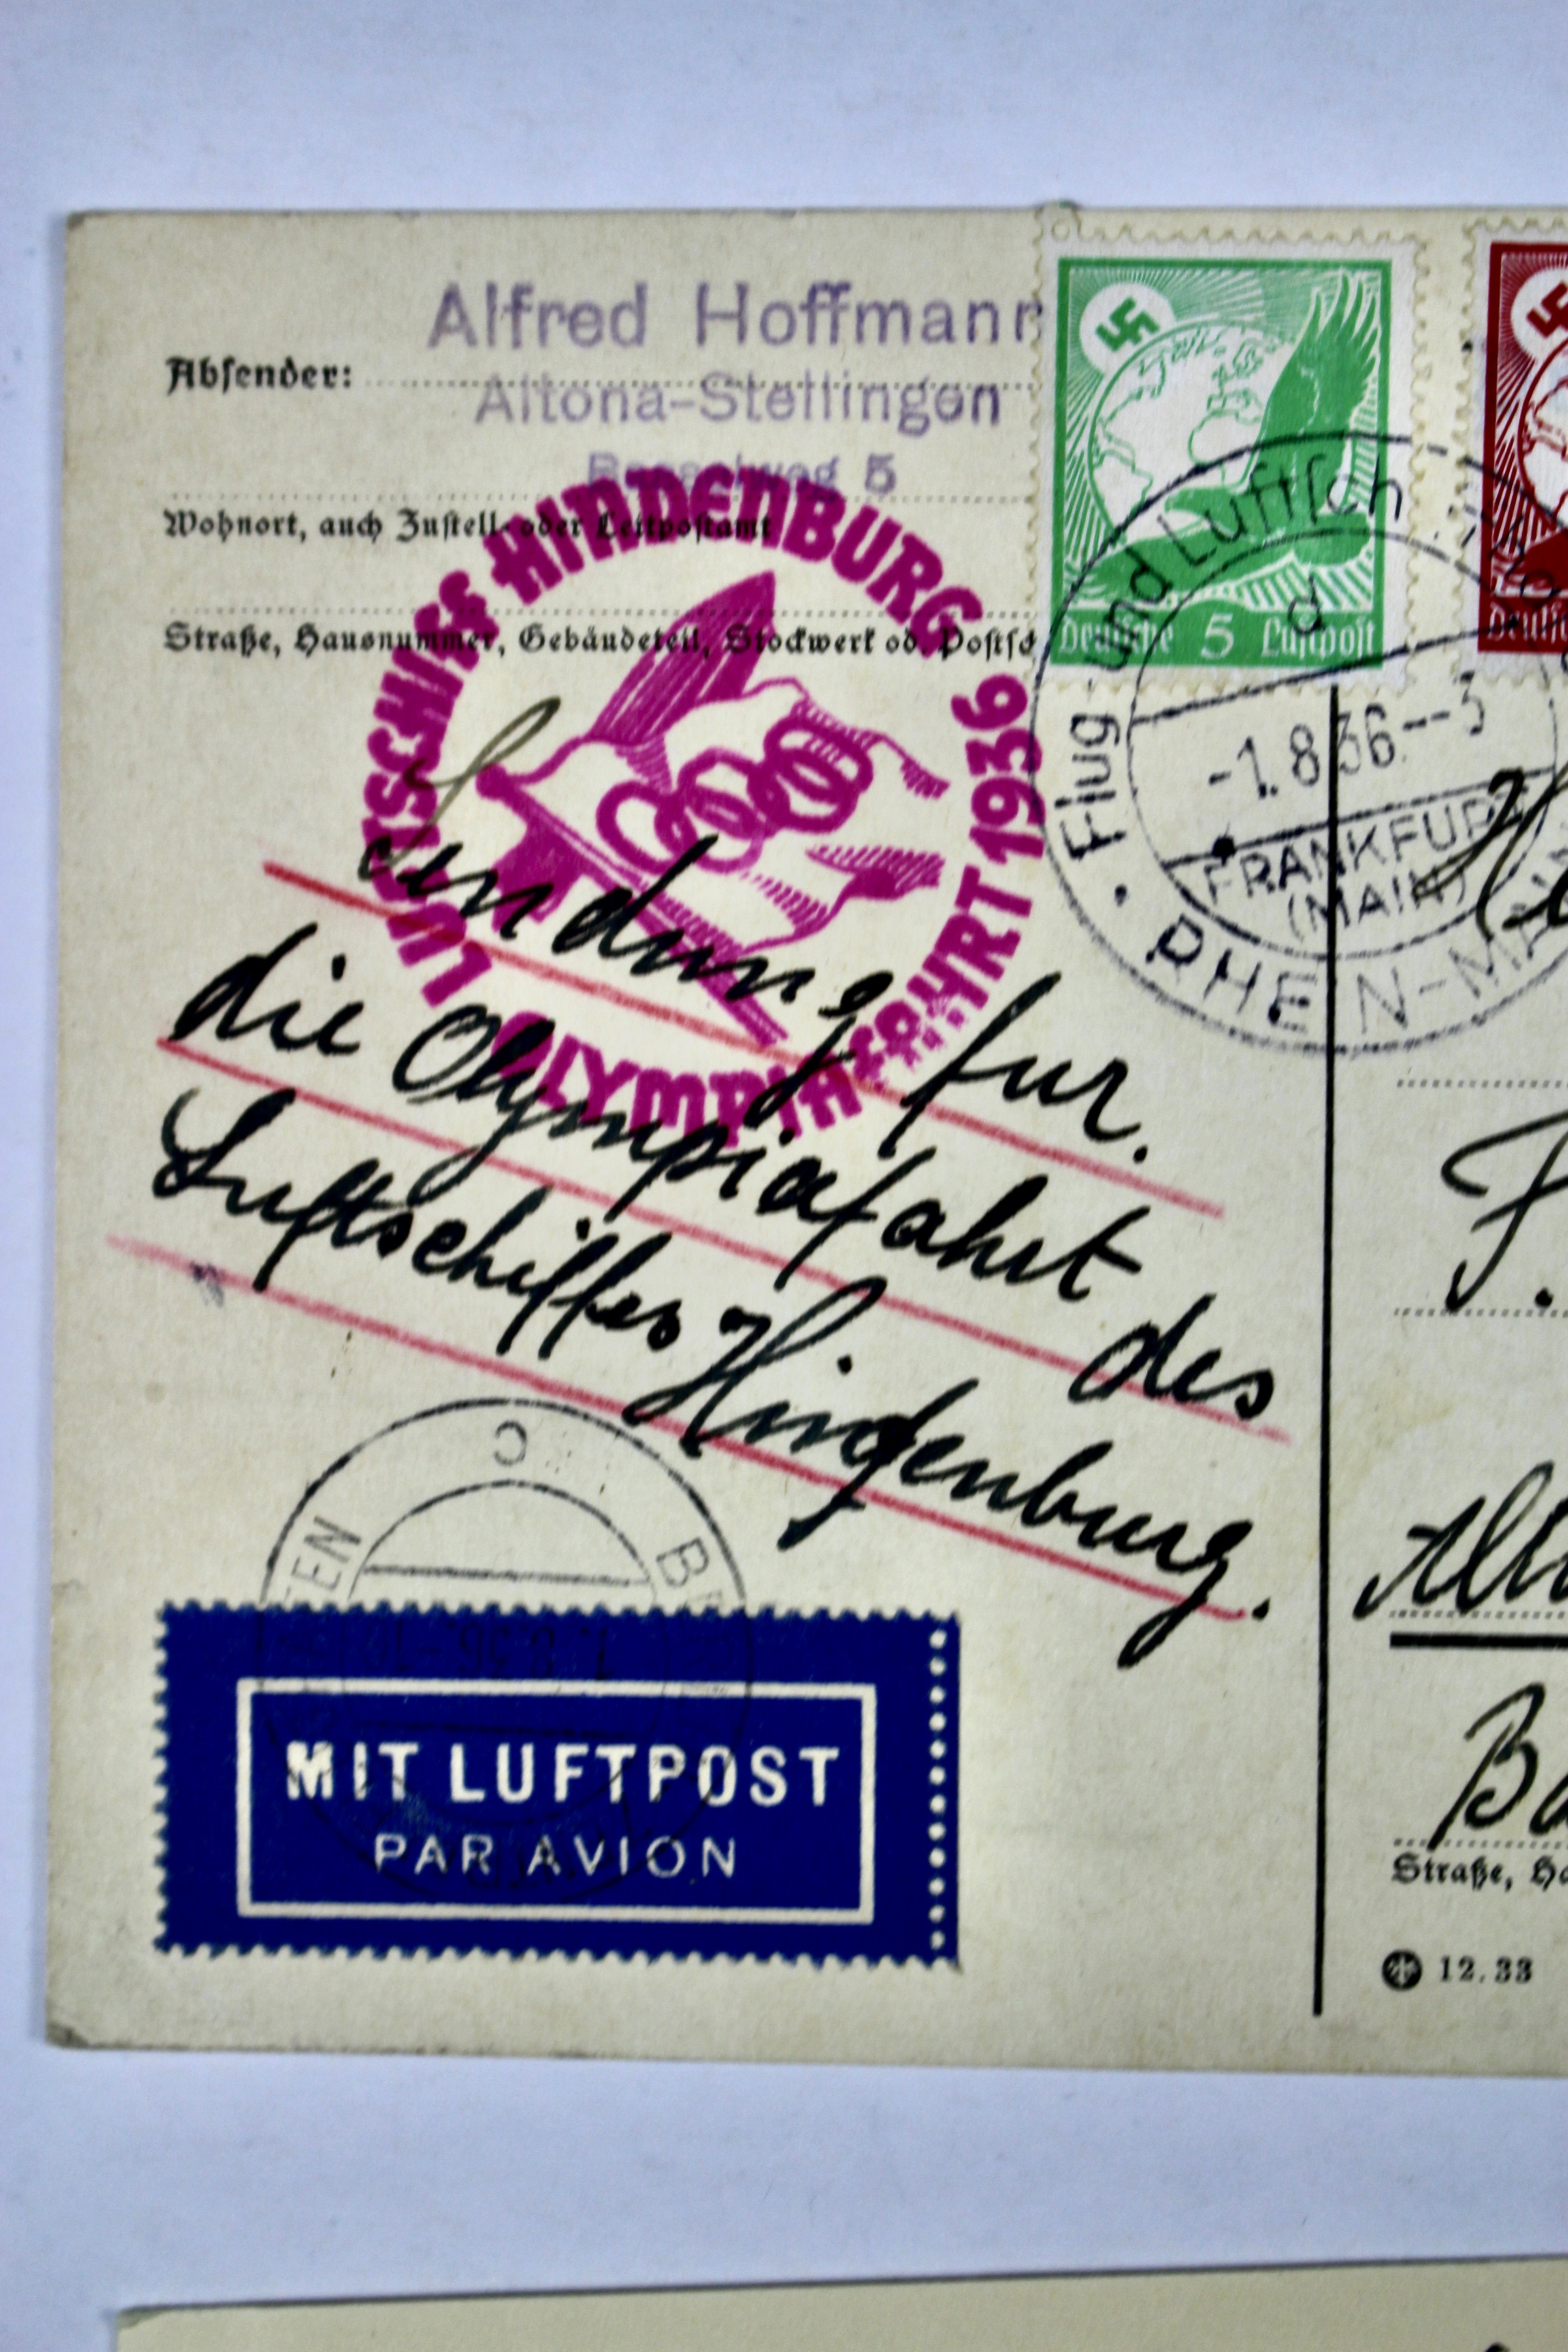 Alfred Hoffmann
Absender:
Altona-Stellingen
5
Wohnort, auch Zustell- oder Leitpostamt
Straße, Hausnummer, Gebäudeteil, Stockwerk od. Postsch
LUFTSCHIFF HINDENBURG
OLYMPIAFAHRT 1936
Deutsche 5 Luftpost
Flug- und Luftsch
d
-1.8.36.--3
FRANKFURT
(MAIN)
RHEIN-MAIN
Sendung für
die Olympiafahrt des
Luftschiffes Hindenburg.
C
1.8.36.-10
MIT LUFTPOST
PAR AVION
F.
Straße, Ha
12.33